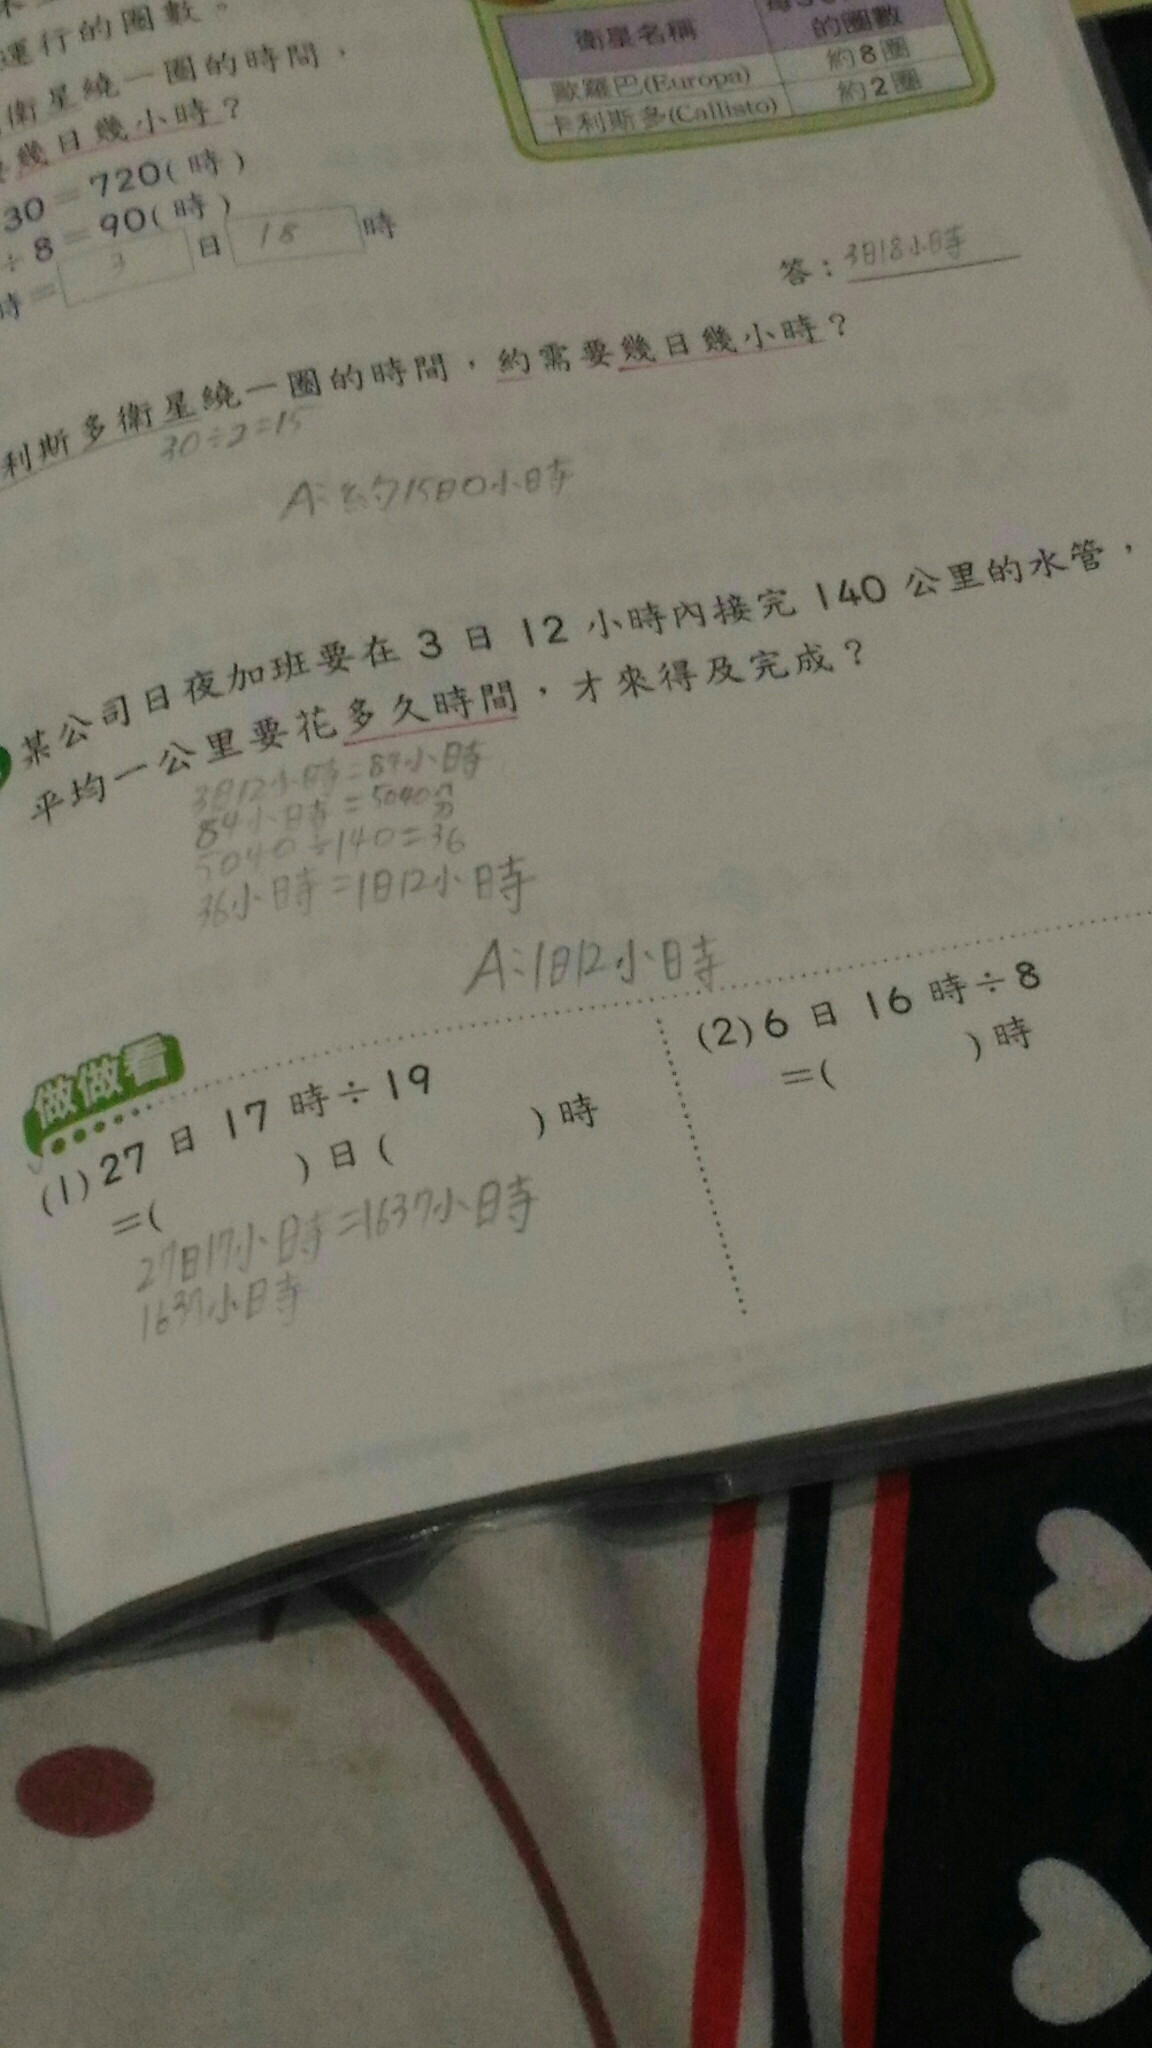 運行的圈數。
衛星名稱
的圈數
歐羅巴(Europa)
約8圈
卡利斯多(Callisto)
約2圈
衛星繞一圈的時間，
幾日幾小時？
30=720(時)
÷8=90(時)
時= 3 日 18 時
答：3日18小時
利斯多衛星繞一圈的時間，約需要幾日幾小時？
30÷2=15
A:約15日0小時
某公司日夜加班要在 3 日 12 小時內接完 140 公里的水管，
平均一公里要花多久時間，才來得及完成？
3日12小時=84小時
84小時=5040分
5040÷140=36
36小時=1日12小時
A:1日12小時
做做看
(1)27 日 17 時÷19
=( )日( )時
27日17小時=1637小時
1637小時
(2)6 日 16 時÷8
=( )時